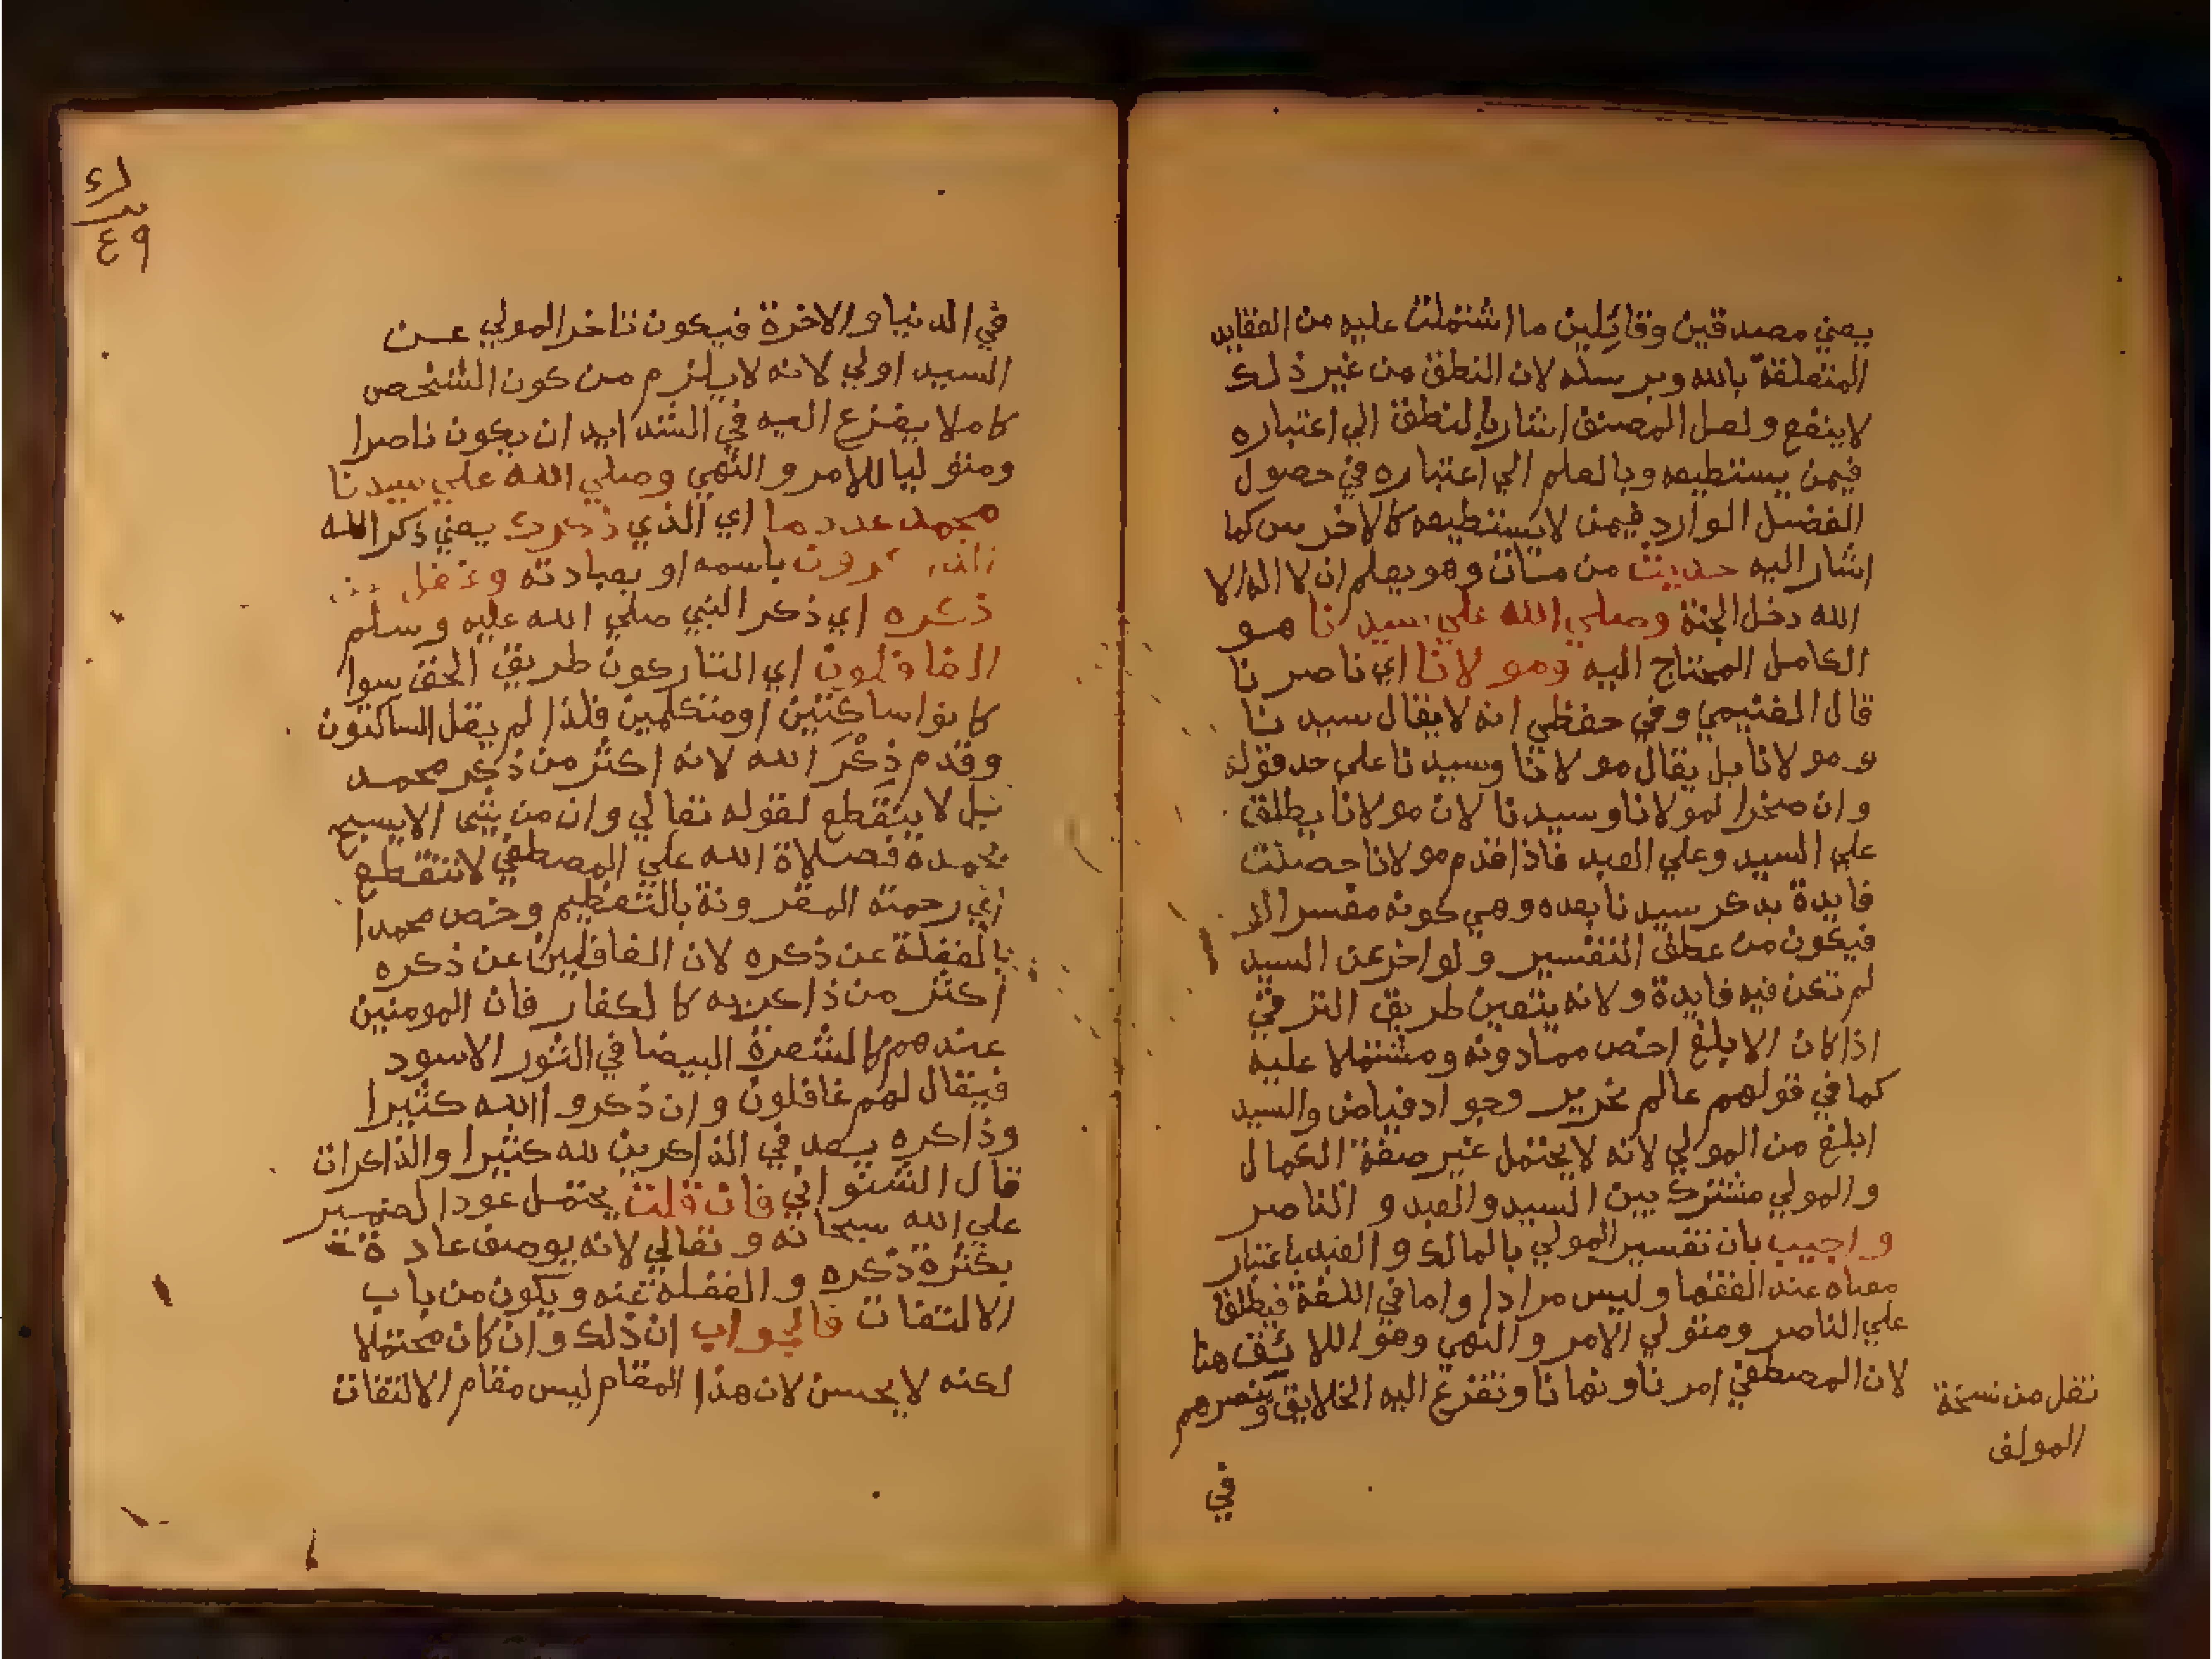 يعني مصدقين وقائلين ما اشتملت عليه من العقايد
المتعلقة بالله وبرسله لان النطق من غير ذلك
لا ينفع ولعل المصنف اشار بالنطق الي اعتباره
فيمن يستطيعه وبالعلم الي اعتباره في حصول
الفضل الوارد فيمن لا يستطيعه كالاخرس كما
اشار اليه حديث من مات وهو يعلم ان لا اله الا
الله دخل الجنة وصلي الله علي سيدنا هو
الكامل المحتاج اليه ومولانا اي ناصرنا
قال الغنيمي وفي حفظي انه لا يقال سيدنا
ومولانا بل يقال مولانا وسيدنا علي حد قوله
وان صخرا لمولانا وسيدنا لان مولانا يطلق
علي السيد وعلي العبد فاذا قدم مولانا حصلت
فايدة بذكر سيدنا بعده وهي كونه مفسرا له
فيكون من عطف التفسير ولو اخر عن السيد
لم تكن فيه فايدة ولانه يتعين طريق الترقي
اذا كان الابلغ اخص مما دونه ومشتملا عليه
كما في قولهم عالم نحرير وجواد فياض والسيد
ابلغ من المولي لانه لا يحتمل غير صفة الكمال
والمولي مشترك بين السيد والعبد والناصر
واجيب بان تفسير المولي بالمالك والعبد باعتبار
معناه عند الفقها وليس مرادا واما في اللغة فيطلق
علي الناصر ومتولي الامر والنهي وهو اللائق هنا
لان المصطفي امرنا ونهانا وتفزع اليه الخلايق وينصرهم
في
نقل من نسخة
المولف
٤٩
في الدنيا والاخرة فيكون تاخر المولي عن
السيد اولي لانه لا يلزم من كون الشخص
كاملا يفزع اليه في الشدايد ان يكون ناصرا
ومتوليا للامر والنهي وصلي الله علي سيدنا
محمد عدد ما اي الذي ذكرك يعني ذكر الله
باسمه او بعبادته وغفل عن
ذكره اي ذكر النبي صلي الله عليه وسلم
الغافلون اي التاركون طريق الحق سوا
كانوا ساكتين او متكلمين فلذا لم يقل الساكتون
وقدم ذِكْرَ الله لانه اكثر من ذكر محمد
بل لا ينقطع لقوله تعالي وان من شي الا يسبح
بحمده فصلاة الله علي المصطفي لا تنقطع
اي رحمته المقرونة بالتعظيم وخص محمدا
بالغفلة عن ذكره لان الغافلين عن ذكره
اكثر من ذاكريه كالكفار فان المومنين
عندهم كالشعرة البيضا في الثور الاسود
فيقال لهم غافلون وان ذكروا الله كثيرا
وذاكره يعد في الذاكرين لله كثيرا والذاكرات
قال الشنواني فان قلت يحتمل عود الضمير
علي الله سبحانه وتعالي لانه يوصف عادة
بكثرة ذكره والغفلة عنه ويكون من باب
الالتفات فالجواب ان ذلك وان كان محتملا
لكنه لا يحسن لان هذا المقام ليس مقام الالتفات